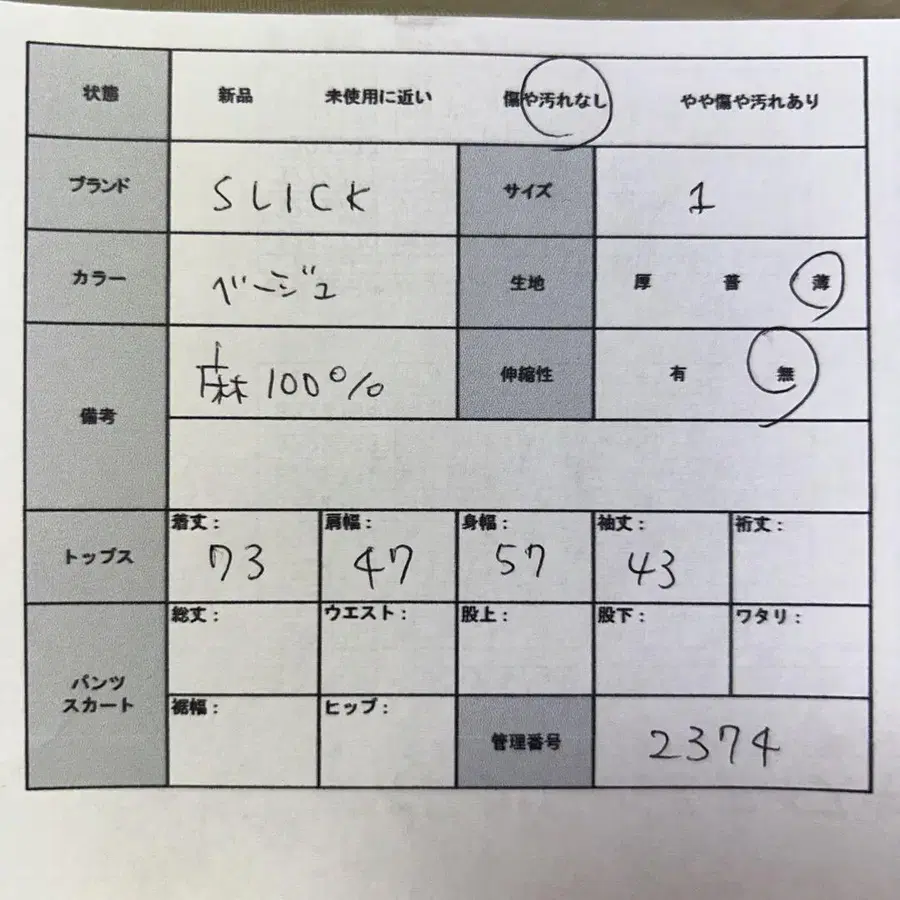 状態 新品 未使用に近い 傷や汚れなし やや傷や汚れあり
ブランド SLICK サイズ 1
カラー ベージュ 生地 厚 普 薄
備考 麻100% 伸縮性 有 無
トップス 着丈: 73 肩幅: 47 身幅: 57 袖丈: 43 裄丈:
パンツ
スカート
総丈: ウエスト: 股上: 股下: ワタリ:
裾幅: ヒップ: 管理番号 2374